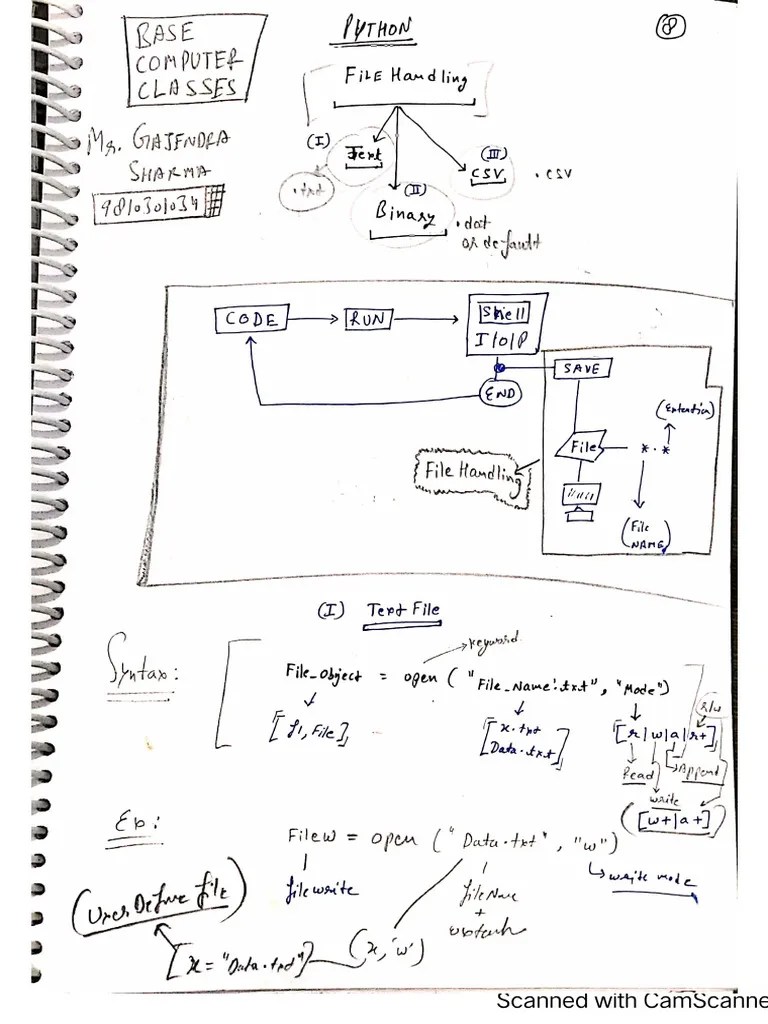 BASE
COMPUTER
CLASSES
PYTHON
8
FILE Handling
Mr. GAJENDRA
SHARMA
9810301034
(I)
Text
.txt
(II)
Binary
.dat
or default
(III)
CSV
.csv
CODE
RUN
Shell
I/O/P
END
SAVE
File
*.*
(Extention)
(File
NAME)
File Handling
(I) Text File
Syntax:
keyword
File_object = open ("File_Name.txt", "Mode")
[f1, File]
[x.txt
Data.txt]
r/w
[r|w|a|r+]
Read
Append
write
([w+|a+])
Ex:
Filew = open ("Data.txt", "w")
file write
fileName
+
write mode
(User Define file)
[x = "Data.txt"]
(x,'w')
Scanned with CamScanne